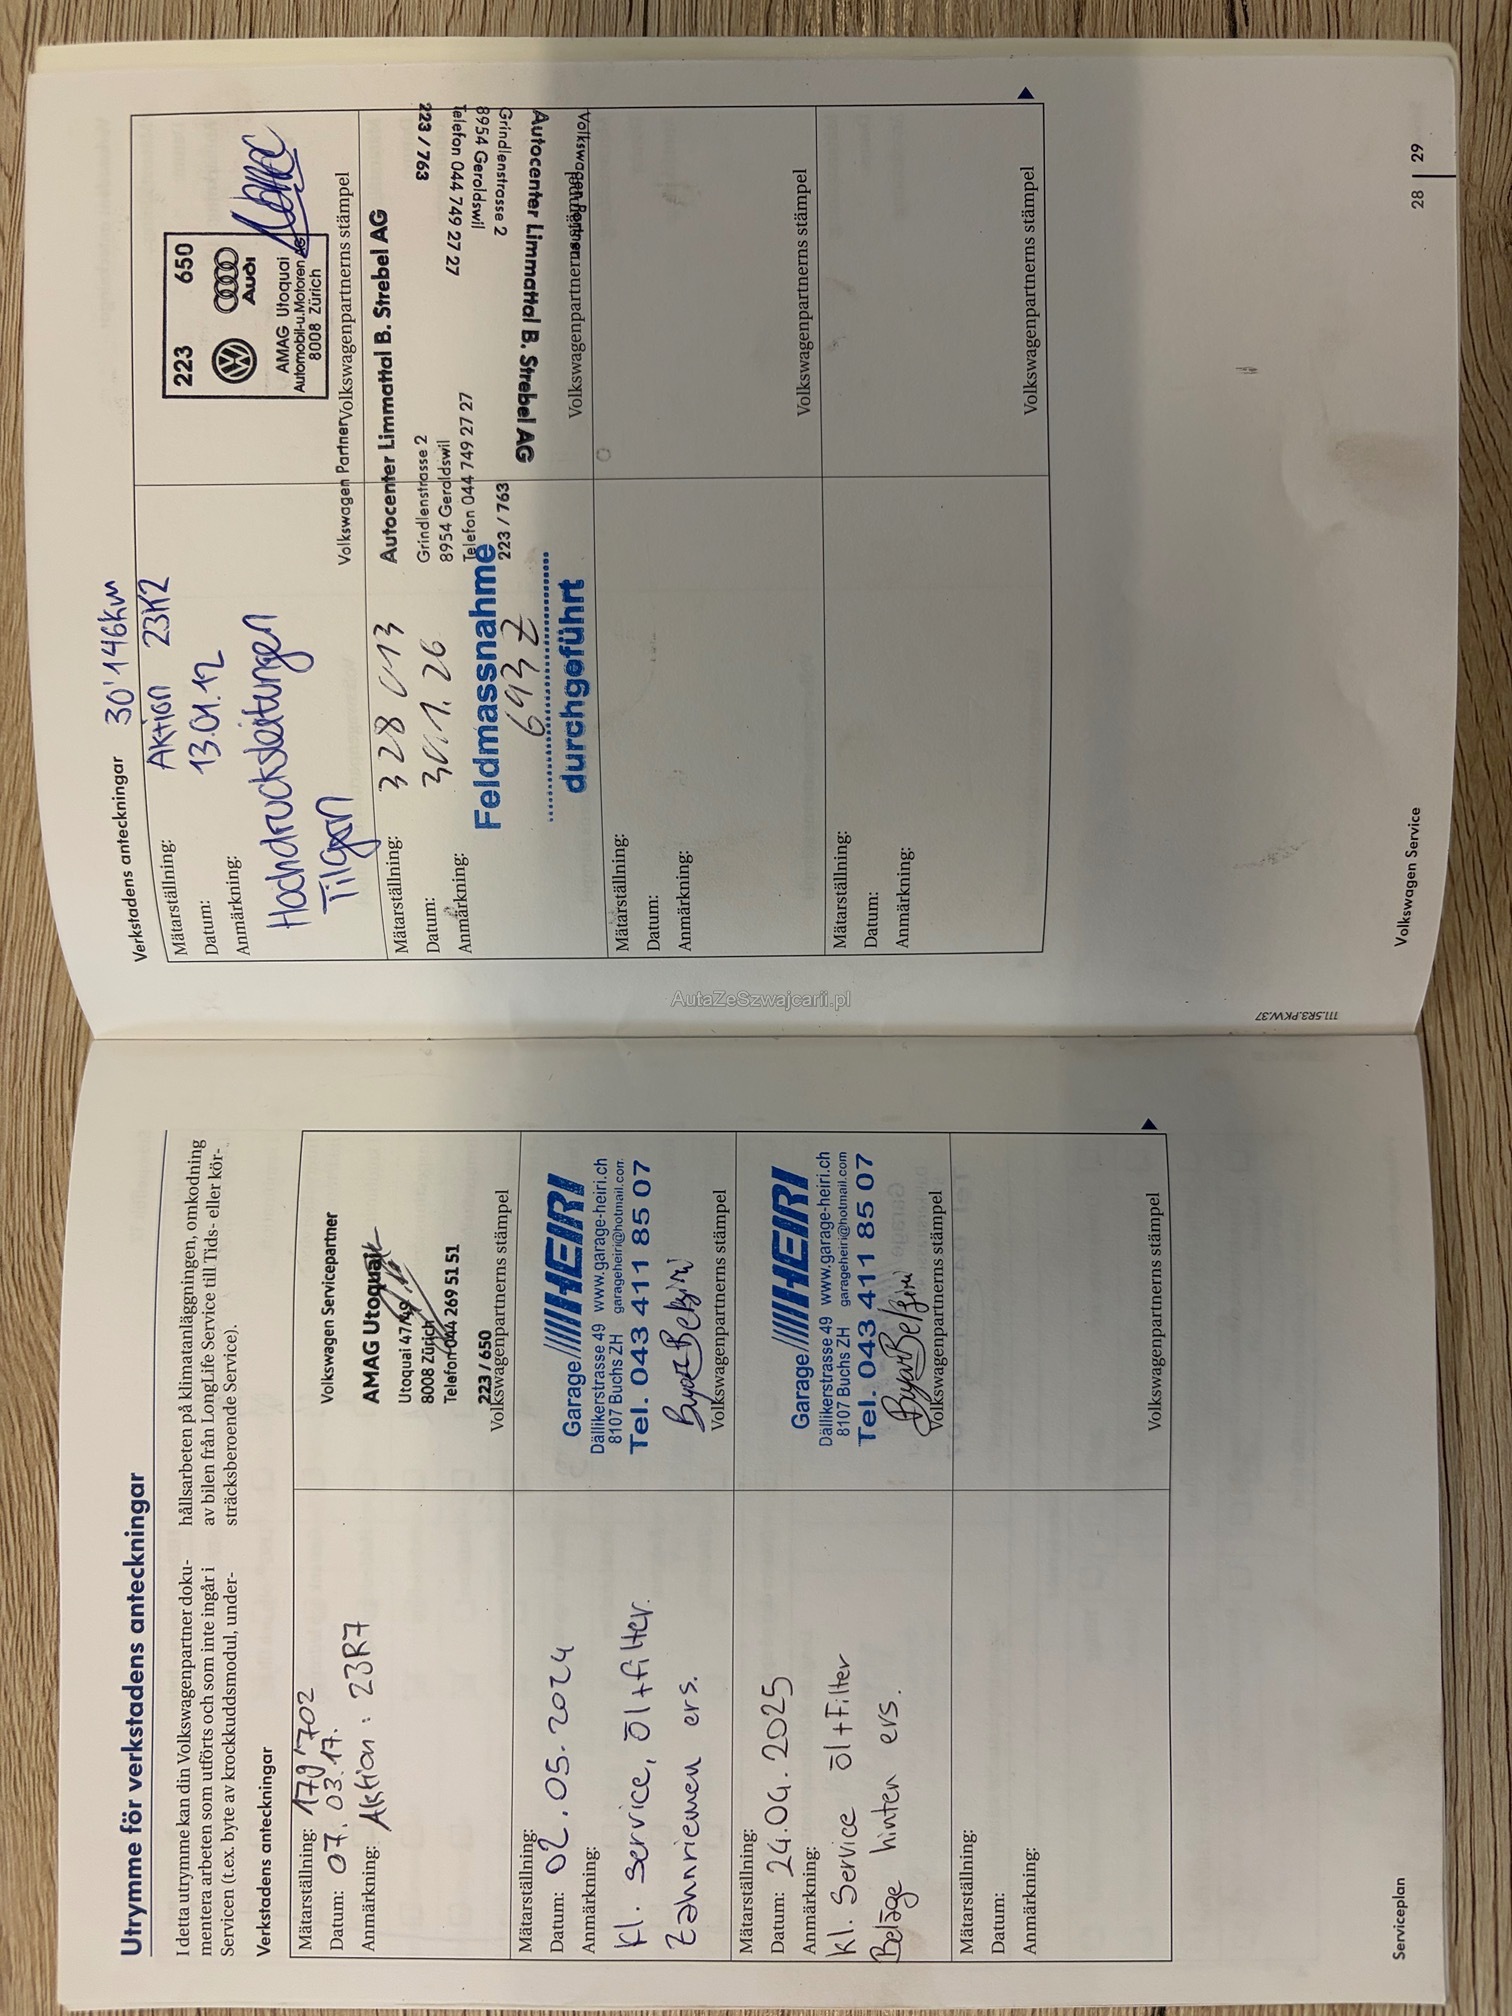 Utrymme för verkstadens anteckningar
I detta utrymme kan din Volkswagenpartner doku-
mentera arbeten som utförts och som inte ingår i
Servicen (t.ex. byte av krockkuddsmodul, under-
hållsarbeten på klimatanläggningen, omkodning
av bilen från LongLife Service till Tids- eller kör-
sträcksberoende Service).
Verkstadens anteckningar
Mätarställning: 179'702
Datum: 07.03.17.
Anmärkning: Aktion: 23R7
Volkswagen Servicepartner
AMAG Utoquai
Utoquai 47/49
8008 Zürich
Telefon 044 269 51 51
223 / 650
Volkswagenpartnerns stämpel
Mätarställning:
Datum: 02.05.2024
Anmärkning:
kl. Service, öl+filter.
Zahnriemen ers.
Garage HEIRI
Dällikerstrasse 49 www.garage-heiri.ch
8107 Buchs ZH garageheiri@hotmail.com
Tel. 043 411 85 07
Volkswagenpartnerns stämpel
Mätarställning:
Datum: 24.04.2025
Anmärkning:
kl. Service öl+Filter
Beläge hinten ers.
Garage HEIRI
Dällikerstrasse 49 www.garage-heiri.ch
8107 Buchs ZH garageheiri@hotmail.com
Tel. 043 411 85 07
Volkswagenpartnerns stämpel
Mätarställning:
Datum:
Anmärkning:
Volkswagenpartnerns stämpel
Serviceplan
Verkstadens anteckningar 30'146km
Mätarställning: Aktion 23K2
Datum: 13.01.12
Anmärkning:
Hochdruckleitungen
Tilgen
223 650
Audi
AMAG Utoquai
Automobil-u.Motoren AG
8008 Zürich
Volkswagen Partner
Volkswagenpartnerns stämpel
Mätarställning: 328 013
Datum: 30.1.26
Anmärkning:
Feldmassnahme
693Z
durchgeführt
Autocenter Limmattal B. Strebel AG
Grindlenstrasse 2
8954 Geroldswil
Telefon 044 749 27 27
223 / 763
Volkswagen Partner
Autocenter Limmattal B. Strebel AG
Grindlenstrasse 2
8954 Geroldswil
Telefon 044 749 27 27
223 / 763
Volkswagenpartnerns stämpel
Mätarställning:
Datum:
Anmärkning:
Volkswagenpartnerns stämpel
Mätarställning:
Datum:
Anmärkning:
Volkswagenpartnerns stämpel
111.5R3.PKW.37
Volkswagen Service
28 | 29
AutaZeSzwajcarii.pl